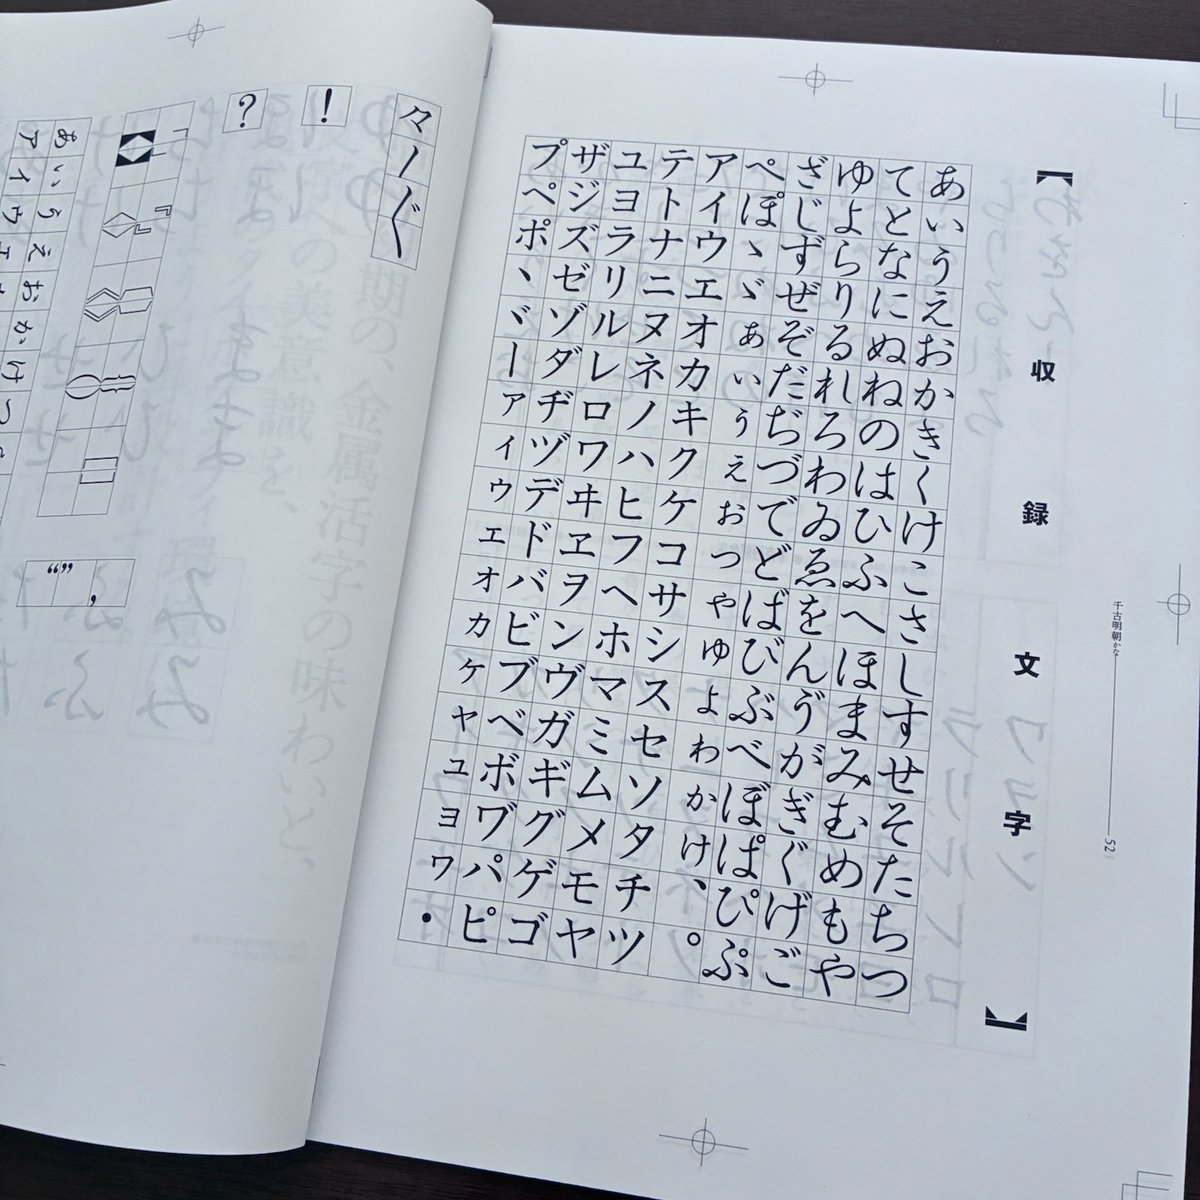 千古明朝かな 52
【収録文字】
あいうえおかきくけこさしすせそたちつ
てとなにぬねのはひふへほまみむめもや
ゆよらりるれろわゐゑをんゔがぎぐげご
ざじずぜぞだぢづでどばびぶべぼぱぴぷ
ぺぽゝゞぁぃぅぇぉっゃゅょゎゕゖ、。
アイウエオカキクケコサシスセソタチツ
テトナニヌネノハヒフヘホマミムメモヤ
ユヨラリルレロワヰヱヲンヴガギグゲゴ
ザジズゼゾダヂヅデドバビブベボヷパピ
プペポヽヾーァィゥェォヵヶャュョヮ・
々
！
？
あいうえおかけ
アイウエ